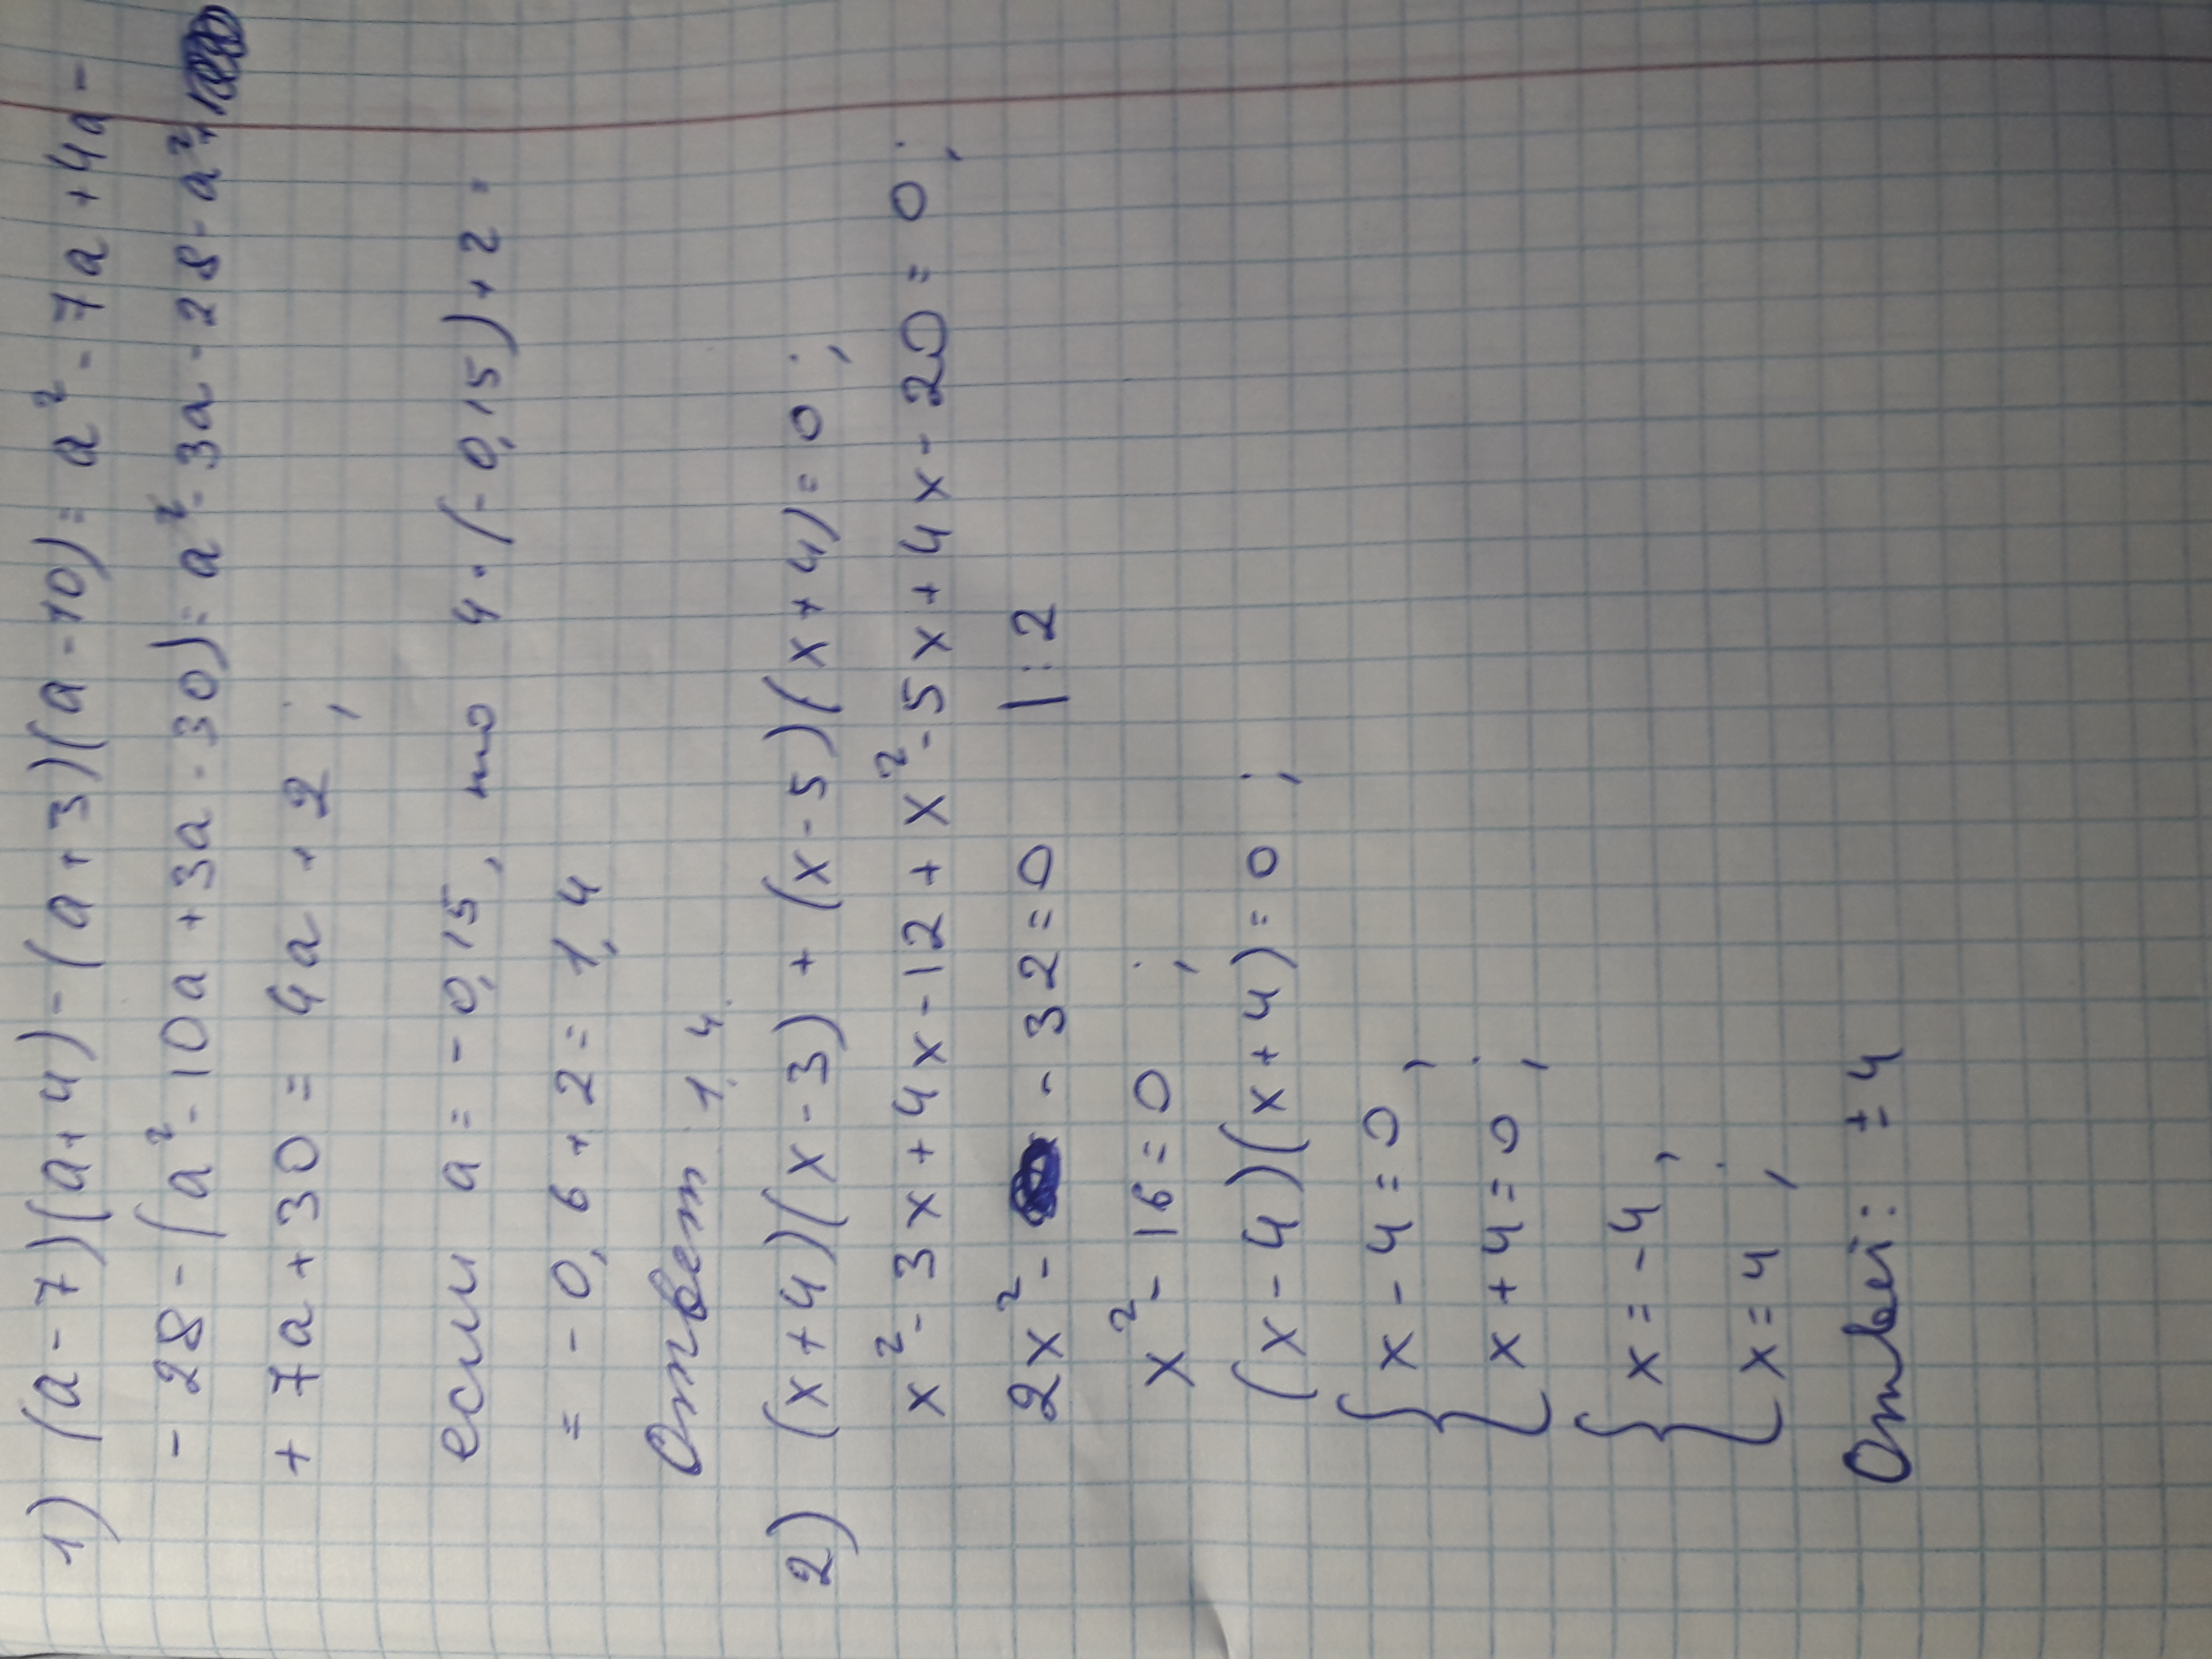 1) (a-7)(a+4)-(a+3)(a-10)=a²-7a+4a-
-28-(a²-10a+3a-30)=a²-3a-28-a²+
+7a+30=4a+2;
если a=-0,15, то 4·(-0,15)+2=
=-0,6+2=1,4
Ответ 1,4.
2) (x+4)(x-3)+(x-5)(x+4)=0;
x²-3x+4x-12+x²-5x+4x-20=0;
2x²- -32=0 |:2
x²-16=0;
(x-4)(x+4)=0;
{x-4=0,
x+4=0;
{x=-4,
x=4;
Ответ: ±4